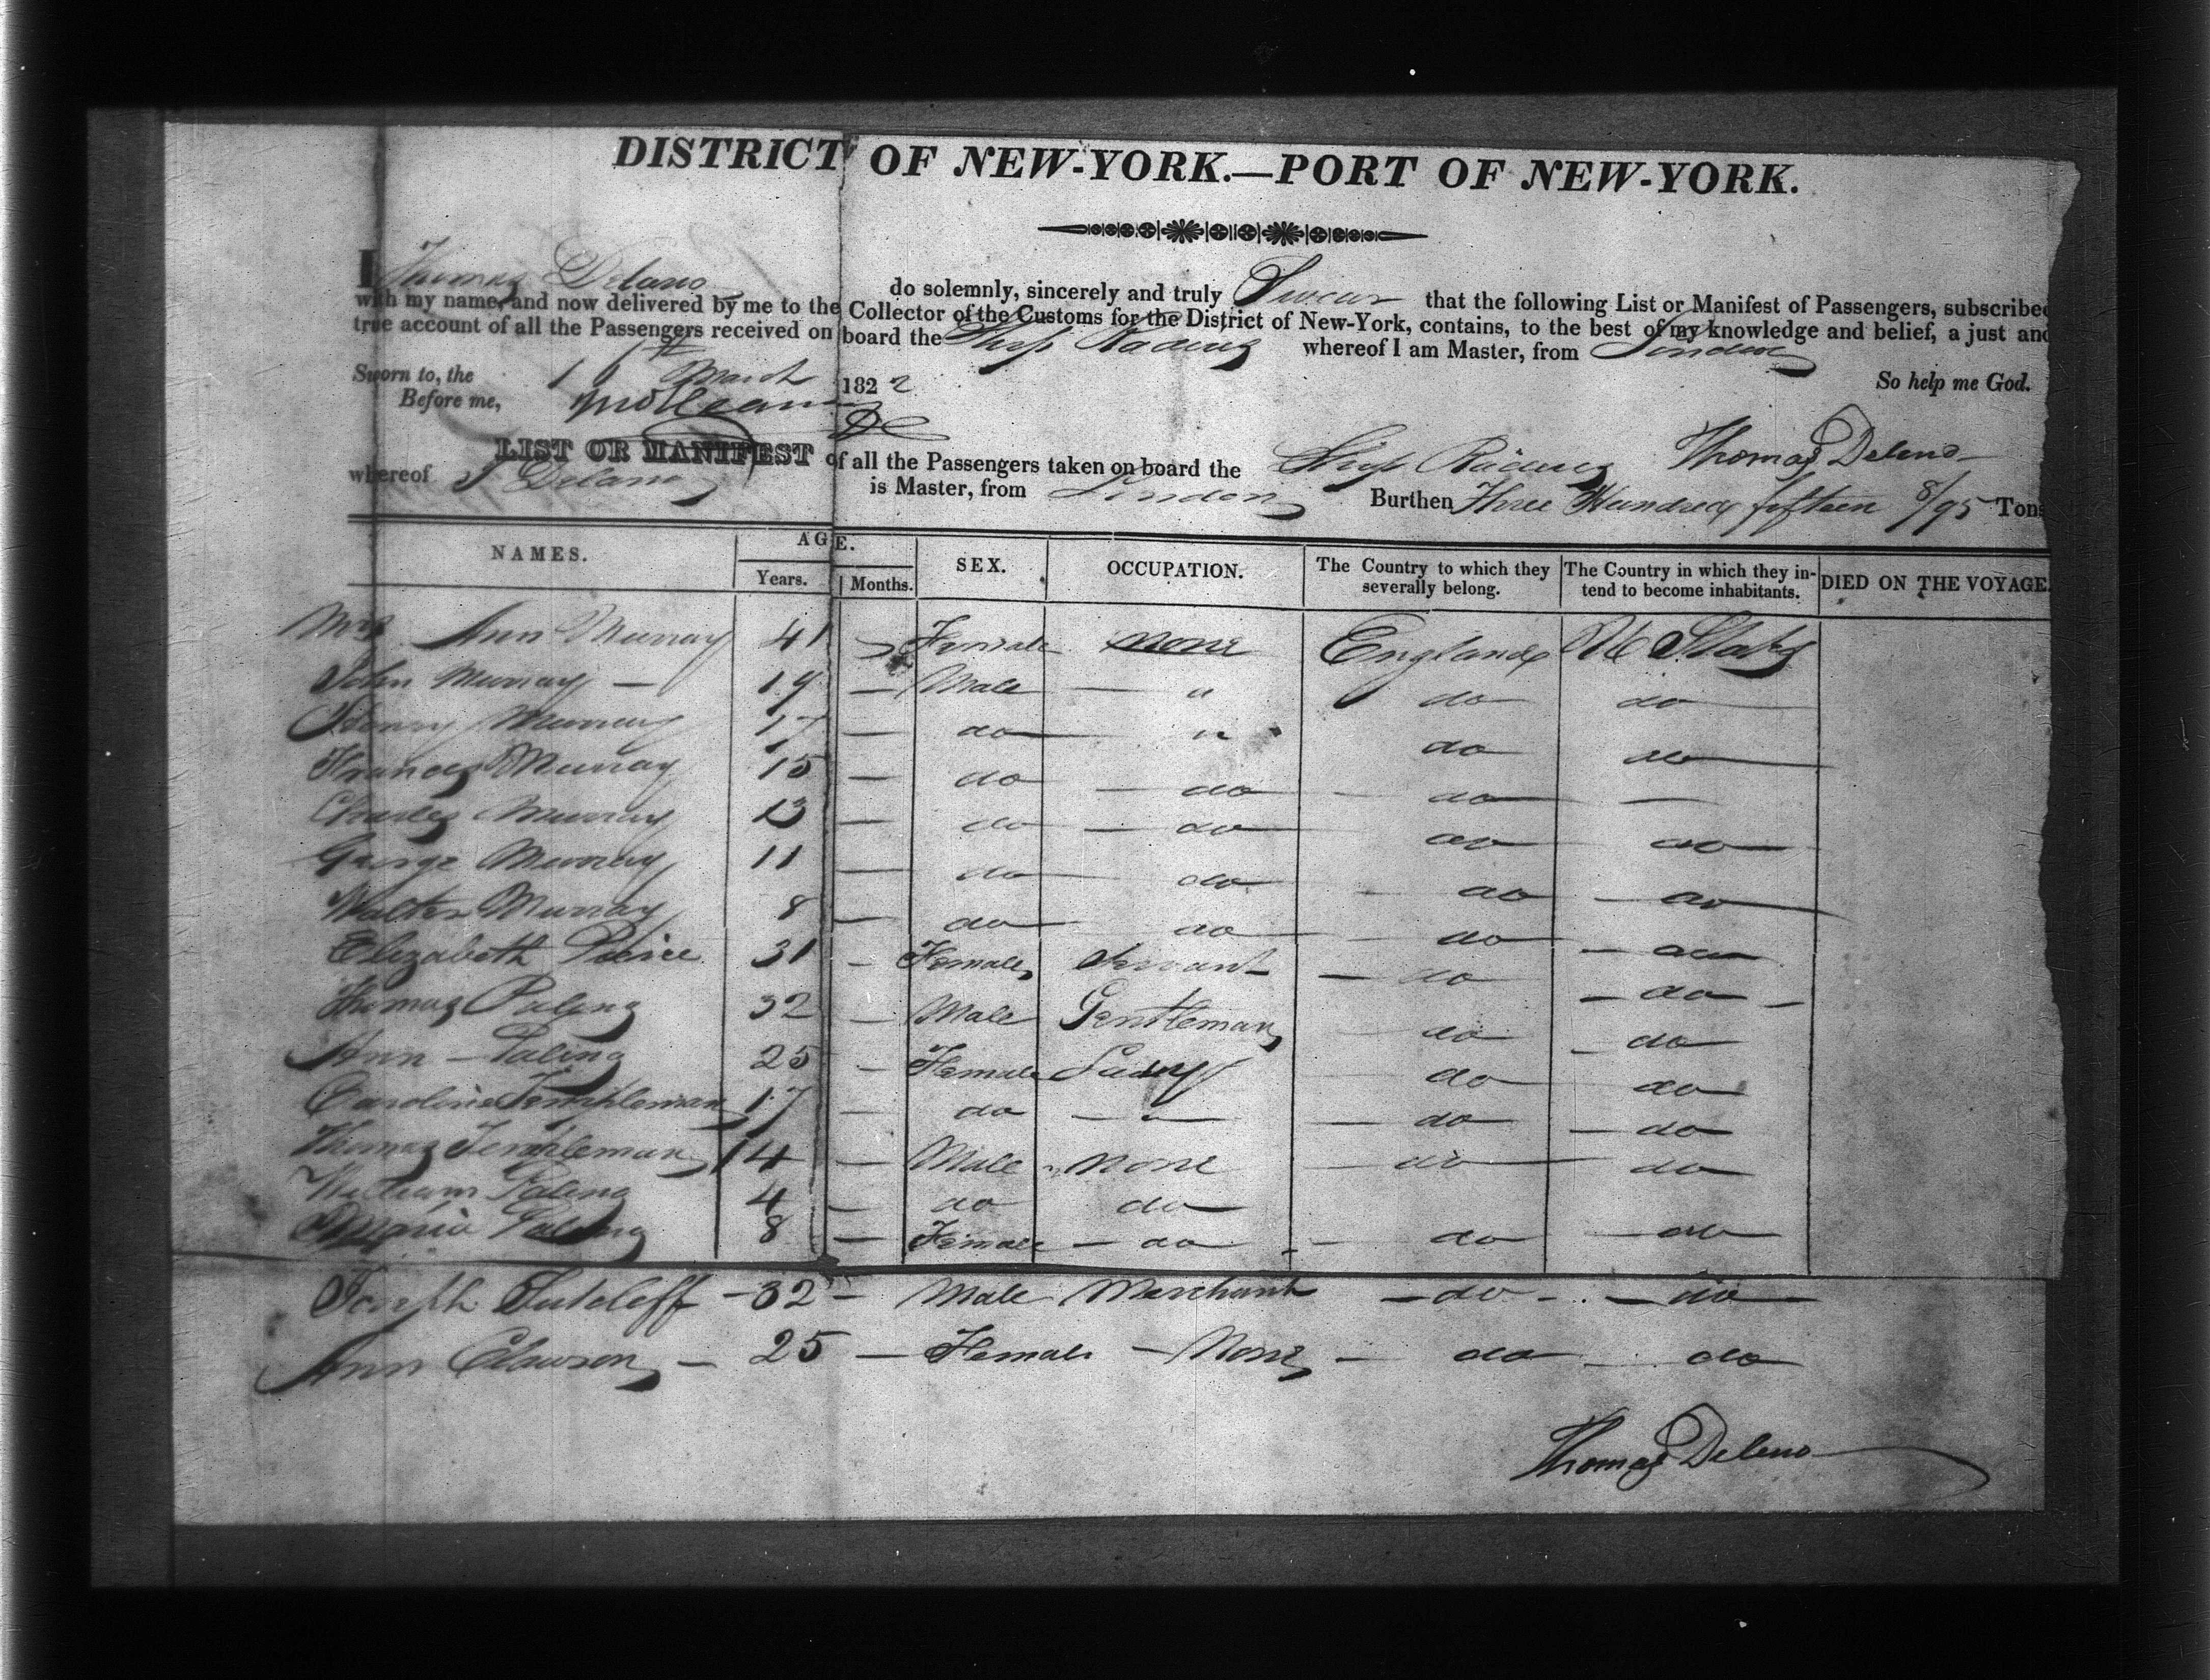 DISTRICT OF NEW-YORK.—PORT OF NEW-YORK.
I Thomas Delano do solemnly, sincerely and truly Swear that the following List or Manifest of Passengers, subscribed
with my name, and now delivered by me to the Collector of the Customs for the District of New-York, contains, to the best of my knowledge and belief, a just and
true account of all the Passengers received on board the Ship whereof I am Master, from London
Sworn to, the 11th March 1822 So help me God.
Before me,
Thomas Delano
LIST OR MANIFEST of all the Passengers taken on board the Ship
whereof T Delano is Master, from London Burthen Three Hundred fifteen 8/95 Tons
NAMES. AGE. SEX. OCCUPATION. The Country to which they severally belong. The Country in which they intend to become inhabitants. DIED ON THE VOYAGE.
Years. Months.
Mrs Ann Murray 41 — Female none England U States
John Murray — 19 — Male — " do do
Henry Murray 17 — do — " do do
Francis Murray 15 — do — do — do — —
Charles Murray 13 — do — do do do
George Murray 11 — do do — do — do
Walter Murray 8 — do do — do — do
Elizabeth Peirce 31 — Female Servant — do — do —
Thomas Paling 32 — Male Gentleman — do — do
Ann — Paling 25 — Female Lady — do do
Caroline Templeman 17 — do — " — do — do
Thomas Templeman 14 — Male none — do do
William Paling 4 — do do
Maria Paling 8 — Female — do — do — do
Joseph Sutcleff — 32 — Male Merchant — do — — do
Ann Clawson — 25 — Female — None — do — do
Thomas Delano